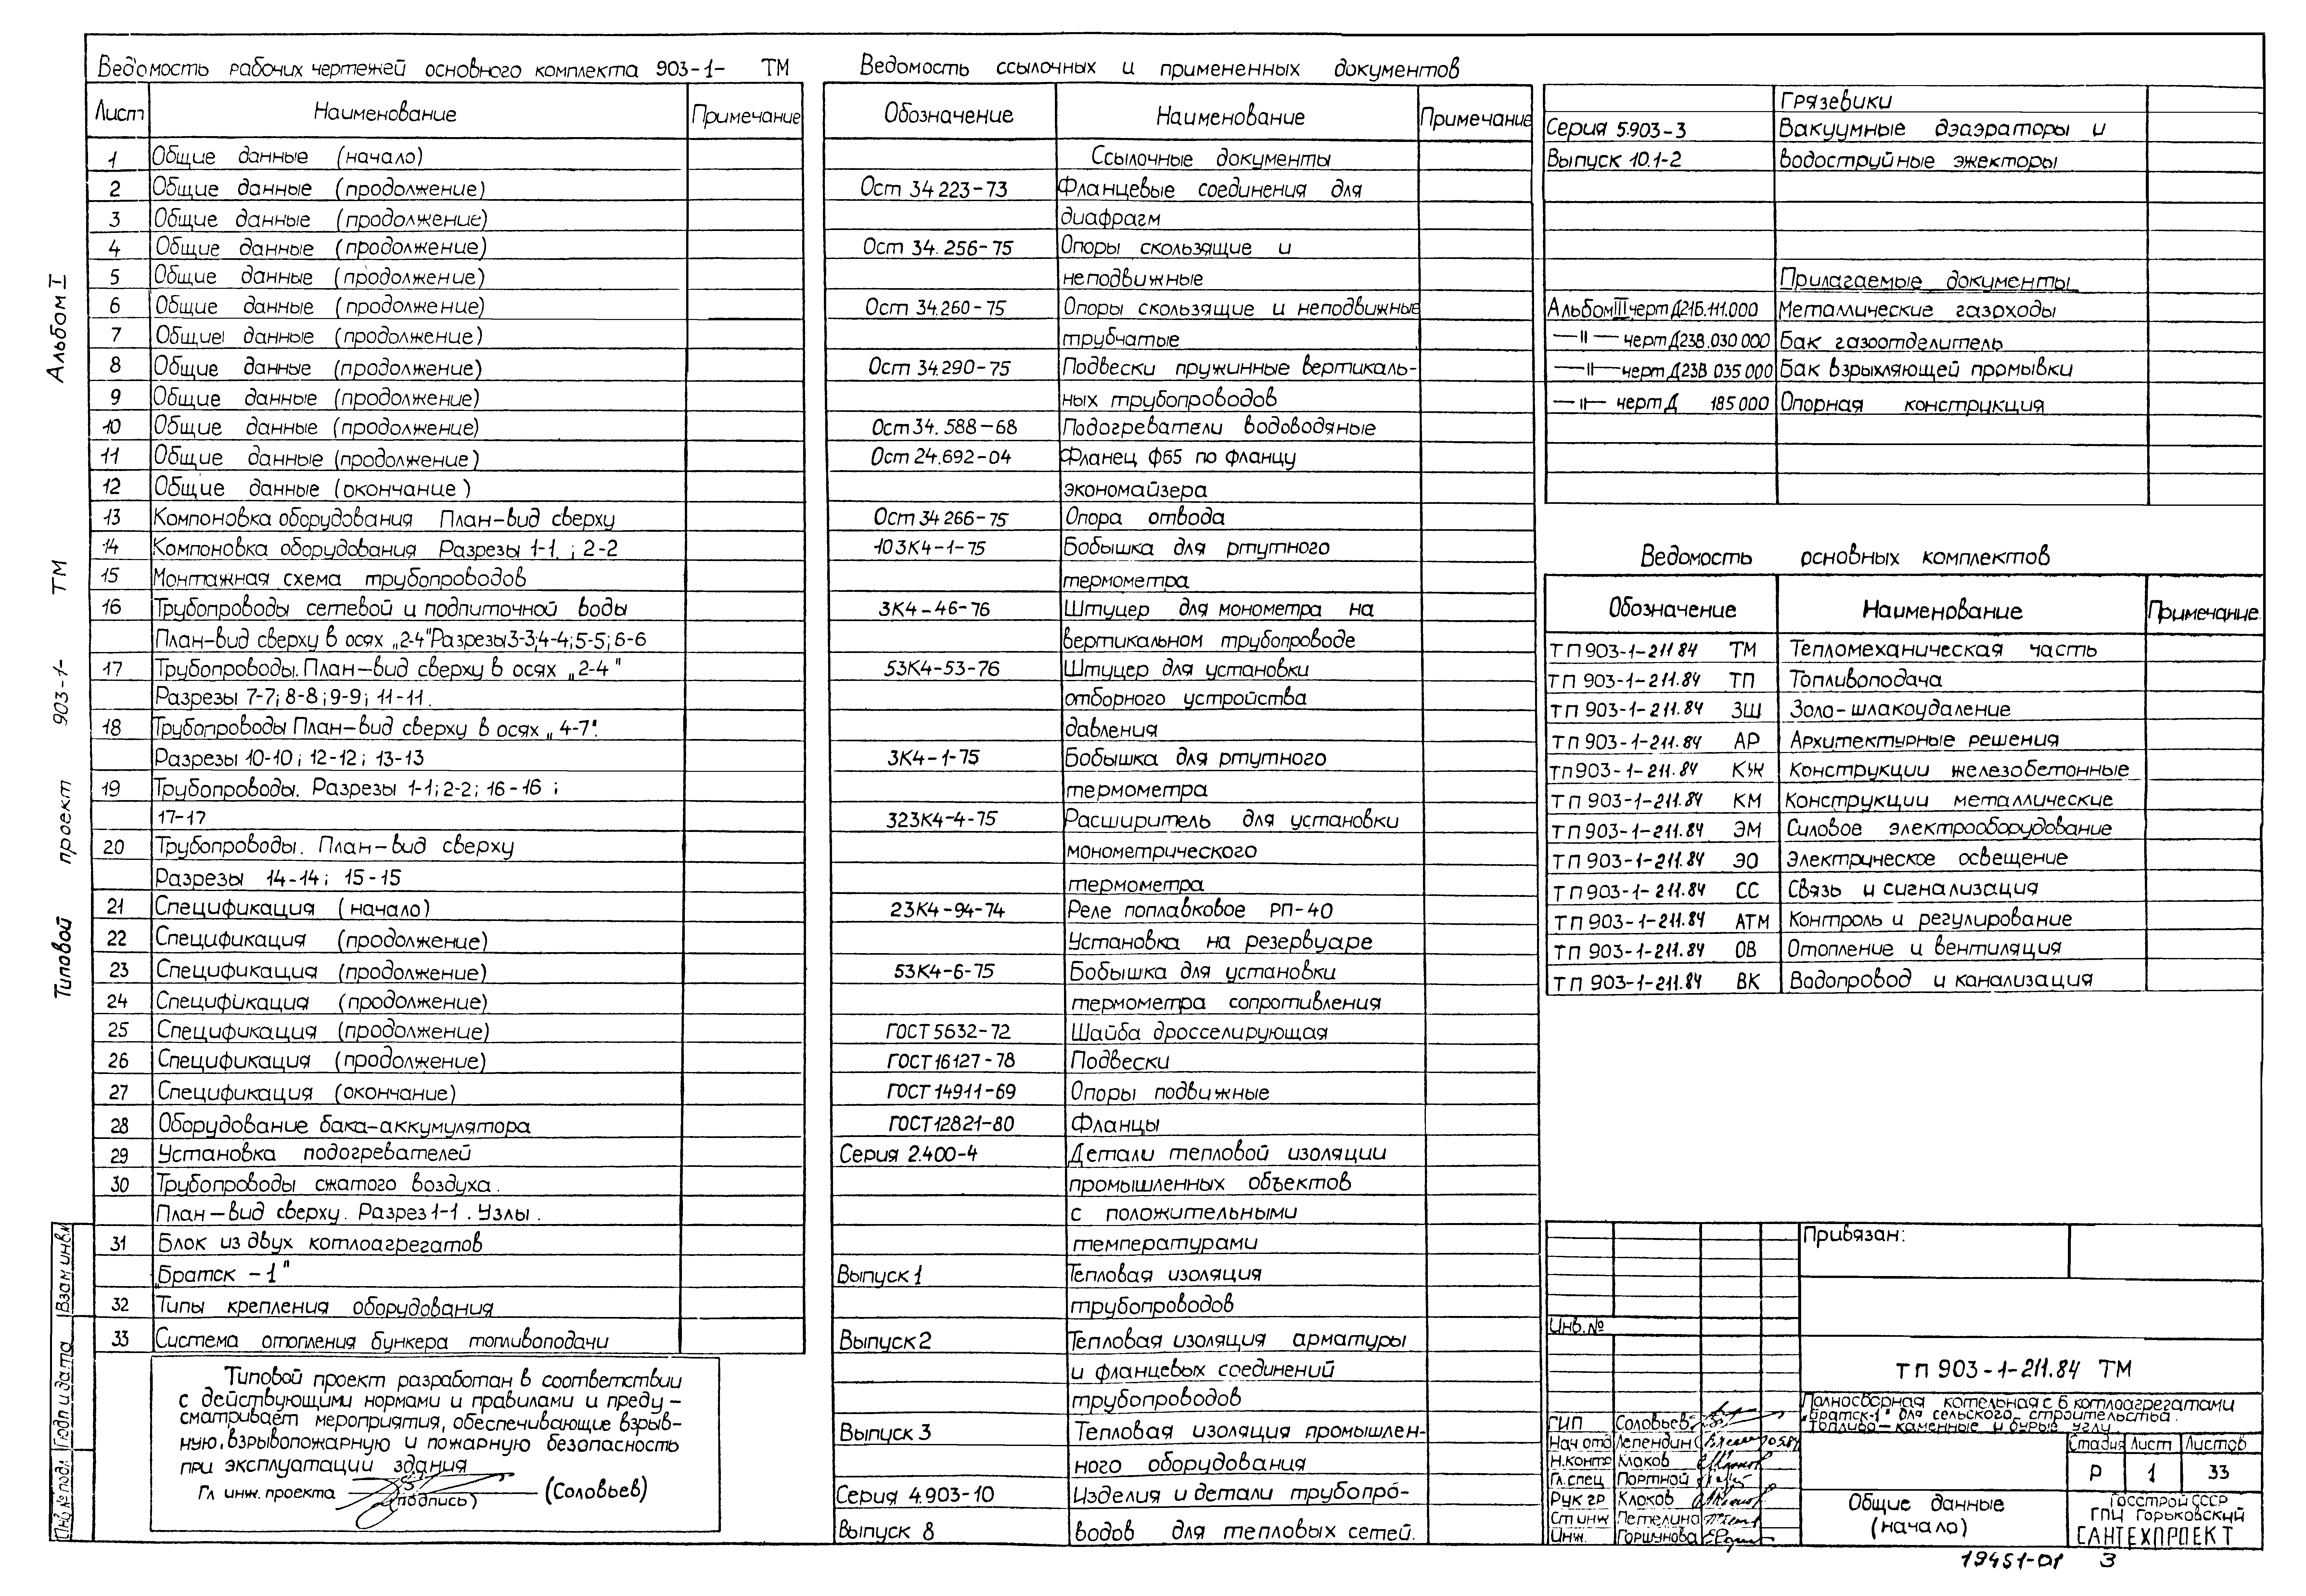 Ведомость рабочих чертежей основного комплекта 903-1- ТМ
Лист Наименование Примечание
1 Общие данные (начало)
2 Общие данные (продолжение)
3 Общие данные (продолжение)
4 Общие данные (продолжение)
5 Общие данные (продолжение)
6 Общие данные (продолжение)
7 Общие данные (продолжение)
8 Общие данные (продолжение)
9 Общие данные (продолжение)
10 Общие данные (продолжение)
11 Общие данные (продолжение)
12 Общие данные (окончание)
13 Компоновка оборудования План-вид сверху
14 Компоновка оборудования Разрезы 1-1 ; 2-2
15 Монтажная схема трубопроводов
16 Трубопроводы сетевой и подпиточной воды
План-вид сверху в осях „2-4" Разрезы 3-3; 4-4; 5-5; 6-6
17 Трубопроводы. План-вид сверху в осях „2-4"
Разрезы 7-7; 8-8; 9-9; 11-11.
18 Трубопроводы План-вид сверху в осях „4-7".
Разрезы 10-10; 12-12; 13-13
19 Трубопроводы. Разрезы 1-1; 2-2; 16-16 ;
17-17
20 Трубопроводы. План-вид сверху
Разрезы 14-14; 15-15
21 Спецификация (начало)
22 Спецификация (продолжение)
23 Спецификация (продолжение)
24 Спецификация (продолжение)
25 Спецификация (продолжение)
26 Спецификация (продолжение)
27 Спецификация (окончание)
28 Оборудование бака-аккумулятора
29 Установка подогревателей
30 Трубопроводы сжатого воздуха.
План-вид сверху. Разрез 1-1. Узлы.
31 Блок из двух котлоагрегатов
„Братск -1"
32 Типы крепления оборудования
33 Система отопления бункера топливоподачи
Типовой проект разработан в соответствии
с действующими нормами и правилами и преду-
сматривает мероприятия, обеспечивающие взрыв-
ную, взрывопожарную и пожарную безопасность
при эксплуатации здания
Гл инж. проекта (подпись) (Соловьев)
Ведомость ссылочных и примененных документов
Обозначение Наименование Примечание
Ссылочные документы
Ост 34 223-73 Фланцевые соединения для
диафрагм
Ост 34.256-75 Опоры скользящие и
неподвижные
Ост 34.260-75 Опоры скользящие и неподвижные
трубчатые
Ост 34.290-75 Подвески пружинные вертикаль-
ных трубопроводов
Ост 34. 588-68 Подогреватели водоводяные
Ост 24.692-04 Фланец ф65 по фланцу
экономайзера
Ост 34 266-75 Опора отвода
103К4-1-75 Бобышка для ртутного
термометра
3К4-46-76 Штуцер для монометра на
вертикальном трубопроводе
53К4-53-76 Штуцер для установки
отборного устройства
давления
3К4-1-75 Бобышка для ртутного
термометра
323К4-4-75 Расширитель для установки
монометрического
термометра
23К4-94-74 Реле поплавковое РП-40
Установка на резервуаре
53К4-6-75 Бобышка для установки
термометра сопротивления
ГОСТ 5632-72 Шайба дросселирующая
ГОСТ 16127-78 Подвески
ГОСТ 14911-69 Опоры подвижные
ГОСТ 12821-80 Фланцы
Серия 2.400-4 Детали тепловой изоляции
промышленных объектов
с положительными
температурами
Выпуск 1 Тепловая изоляция
трубопроводов
Выпуск 2 Тепловая изоляция арматуры
и фланцевых соединений
трубопроводов
Выпуск 3 Тепловая изоляция промышлен-
ного оборудования
Серия 4.903-10 Изделия и детали трубопро-
Выпуск 8 водов для тепловых сетей.
Грязевики
Серия 5.903-3 Вакуумные дэаэраторы и
Выпуск 10.1-2 водоструйные эжекторы
Прилагаемые документы
Альбом III черт Д21Б.111.000 Металлические газоходы
—II— черт Д23В.030 000 Бак газоотделитель
—II— черт Д23В 035 000 Бак взрыхляющей промывки
—II— черт Д 185 000 Опорная конструкция
Ведомость основных комплектов
Обозначение Наименование Примечание
ТП 903-1-211.84 ТМ Тепломеханическая часть
ТП 903-1-211.84 ТП Топливоподача
ТП 903-1-211.84 ЗШ Золо-шлакоудаление
ТП 903-1-211.84 АР Архитектурные решения
ТП 903-1-211.84 КЖ Конструкции железобетонные
ТП 903-1-211.84 КМ Конструкции металлические
ТП 903-1-211.84 ЭМ Силовое электрооборудование
ТП 903-1-211.84 ЭО Электрическое освещение
ТП 903-1-211.84 СС Связь и сигнализация
ТП 903-1-211.84 АТМ Контроль и регулирование
ТП 903-1-211.84 ОВ Отопление и вентиляция
ТП 903-1-211.84 ВК Водопровод и канализация
Привязан:
Инв.№
ТП 903-1-211.84 ТМ
Полносборная котельная с 6 котлоагрегатами
„Братск-1" для сельского строительства.
Топливо-каменные и бурые угли
ГИП Соловьев
Нач отд Лепендин
Н.контр Клоков
Гл.спец Портной
Рук гр Клоков
Ст инж Петелина
Инж. Горшунова
Стадия Лист Листов
Р 1 33
Общие данные
(начало)
Госстрой СССР
ГПИ Горьковский
САНТЕХПРОЕКТ
19451-01 3
Альбом I
Типовой проект 903-1- ТМ
Взам инв.№
Подп и дата
Инв.№ подл